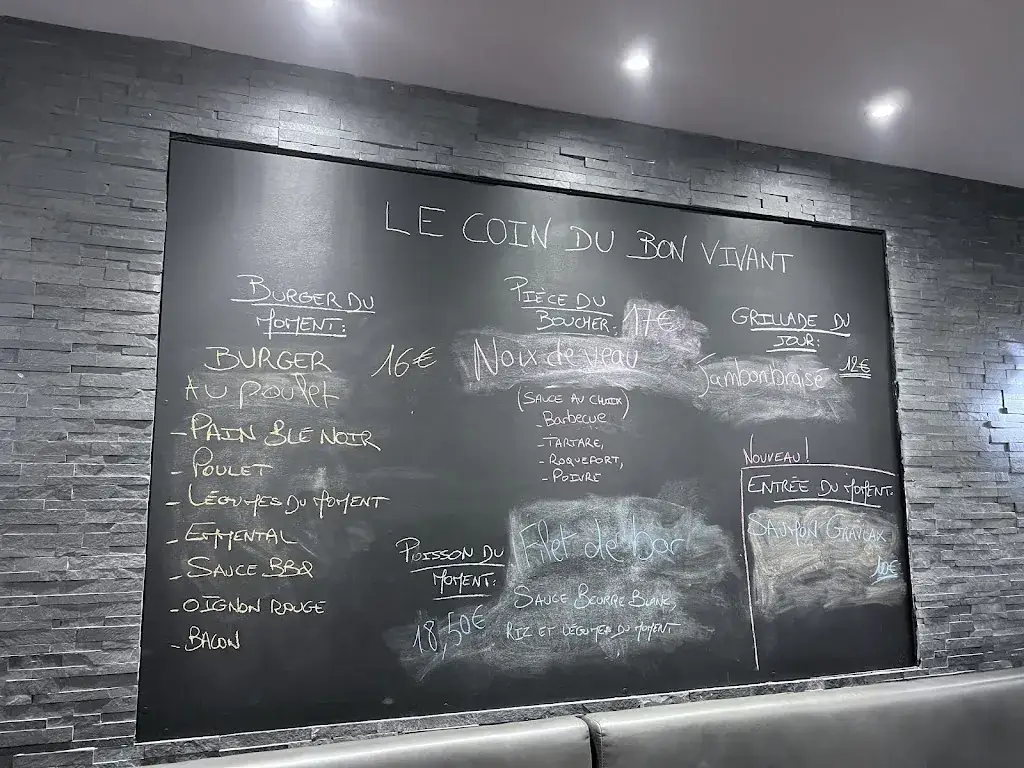 LE COIN DU BON VIVANT
BURGER DU
MOMENT:
BURGER 16€
AU poulet
- PAIN BLE NOIR
- POULET
- LÉGUMES DU MOMENT
- EMMENTAL
- SAUCE BBQ
- OIGNON ROUGE
- BACON
PIÈCE DU
BOUCHER: 17€
Noix de veau
(SAUCE AU CHOIX)
- Barbecue
- TARTARE,
- ROQUEFORT,
- POIVRE
POISSON DU
MOMENT:
18,50€
Filet de bar
SAUCE BEURRE BLANC,
RIZ ET LÉGUMES DU MOMENT
GRILLADE DU
JOUR:
Jambon braisé 12€
NOUVEAU !
ENTRÉE DU MOMENT:
SAUMON GRAVLAX
10€